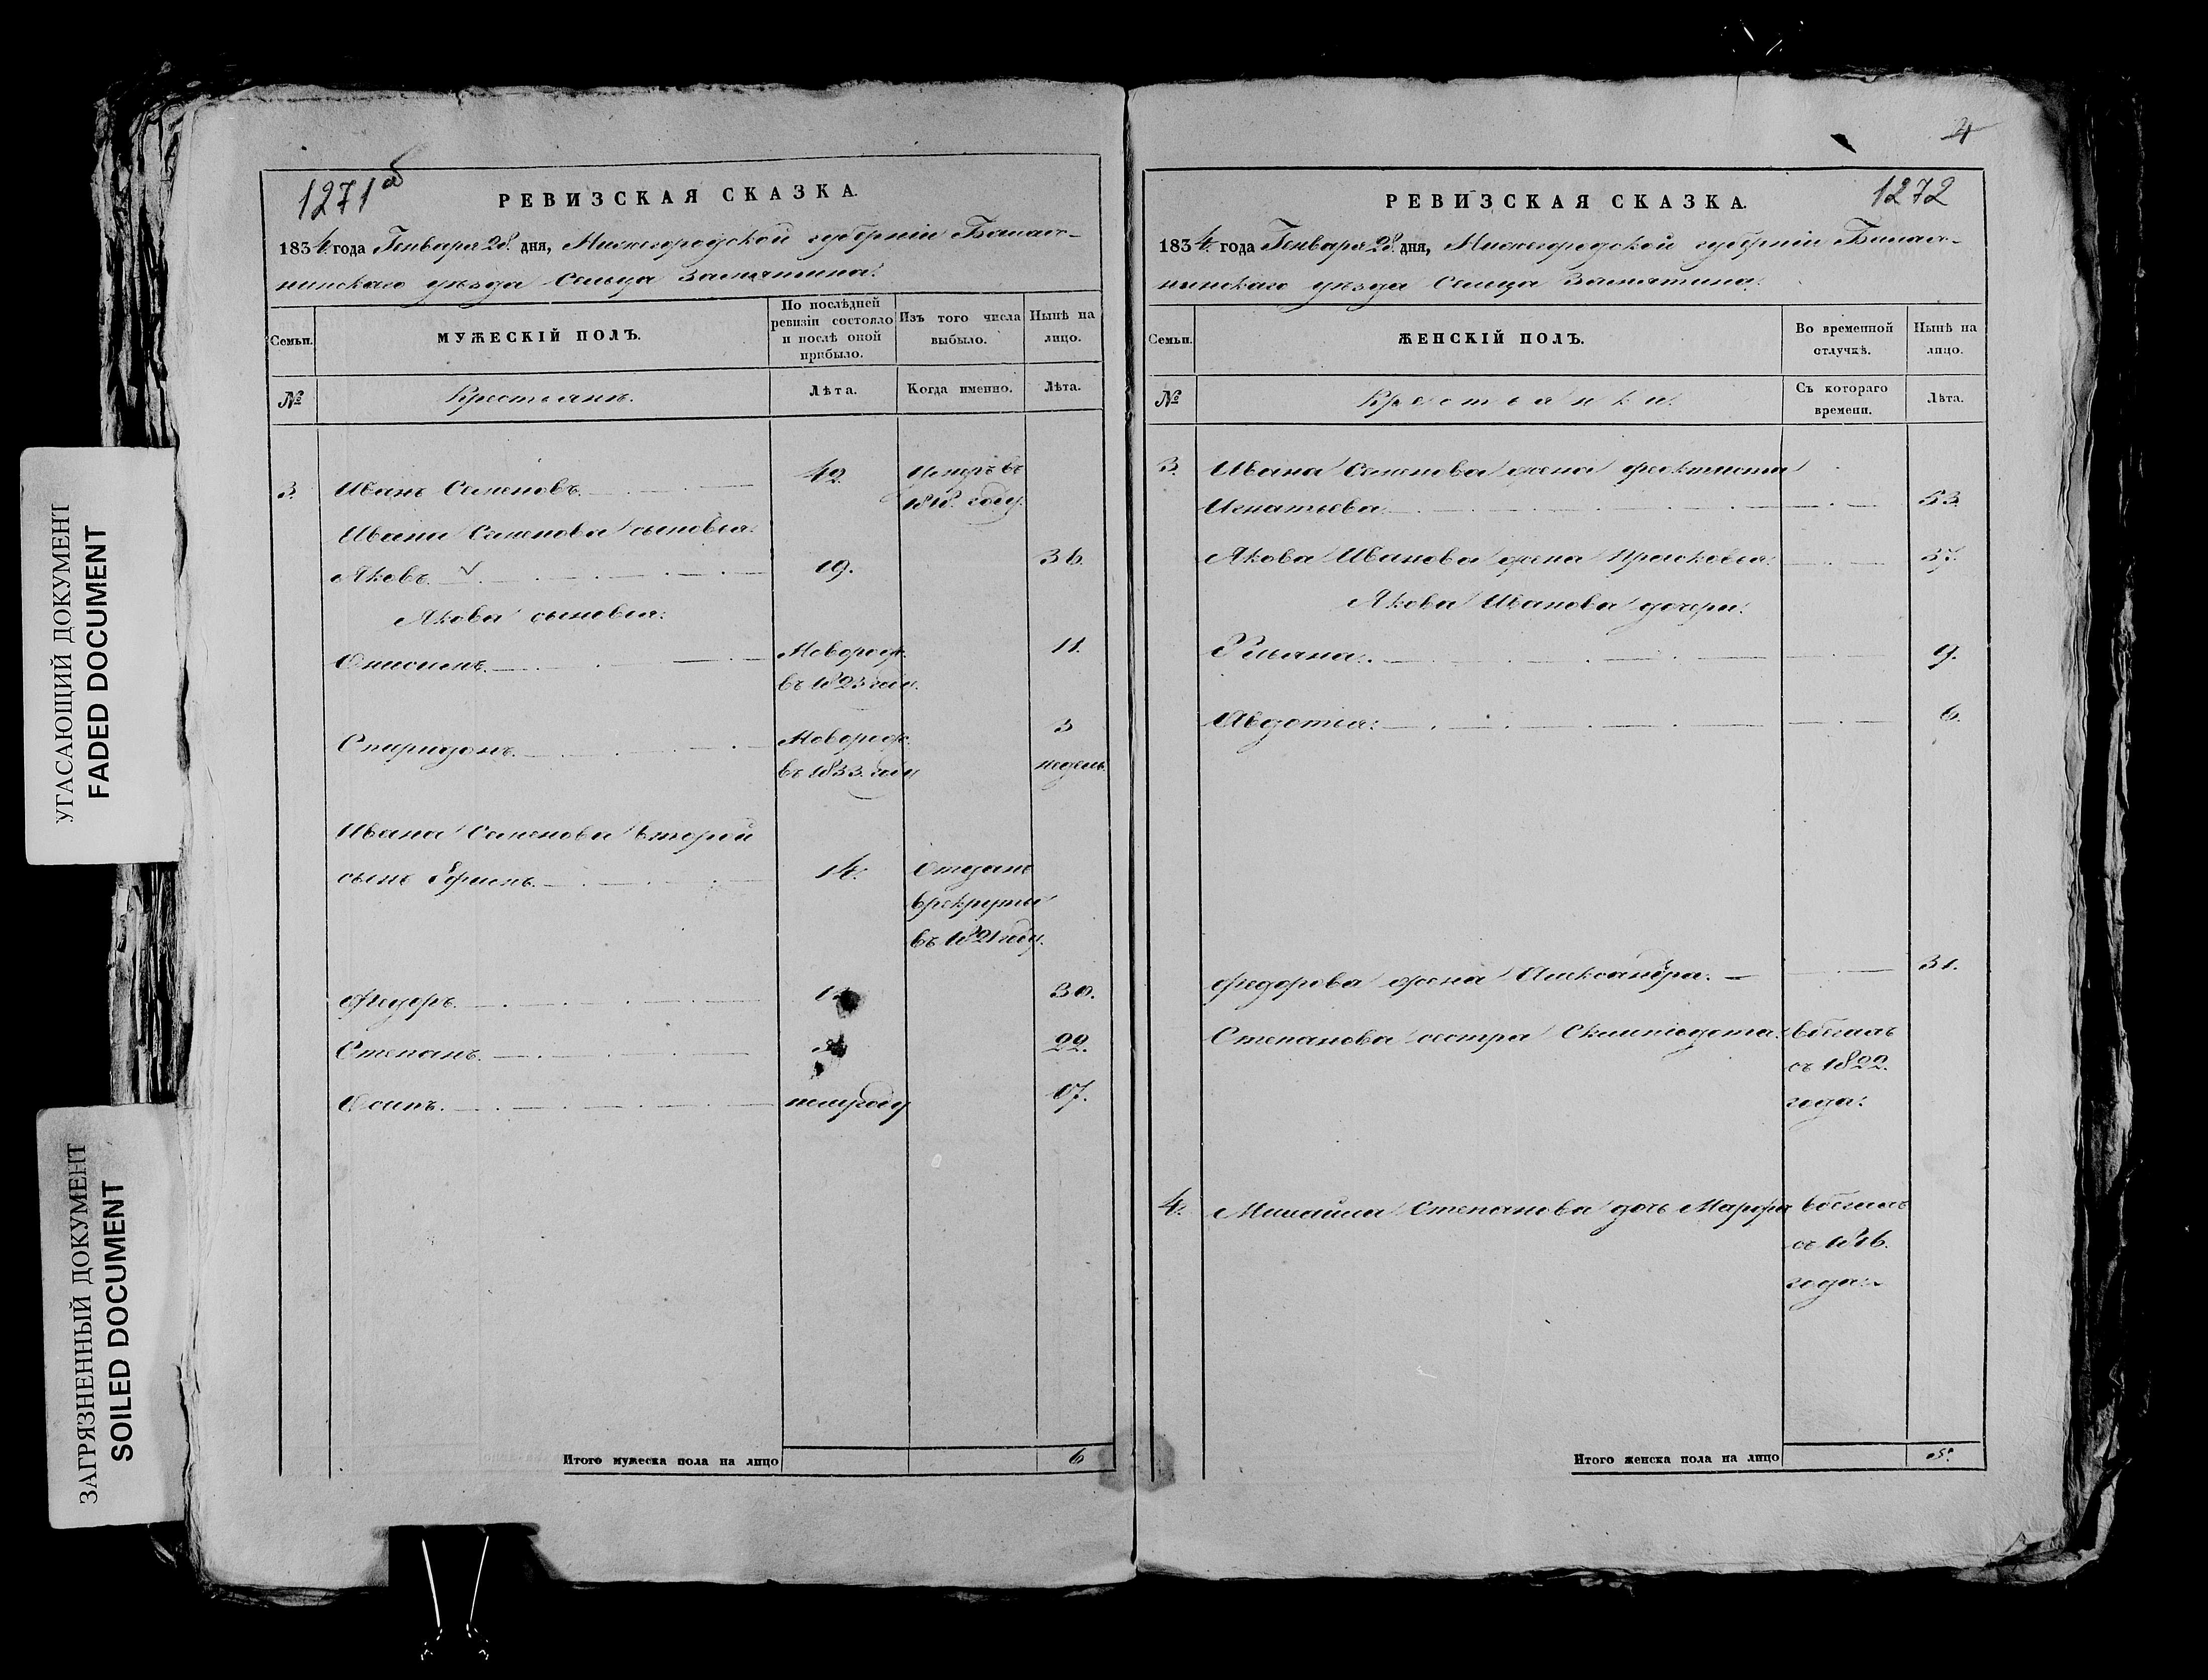 УГАСАЮЩИЙ ДОКУМЕНТ
FADED DOCUMENT
ЗАГРЯЗНЕННЫЙ ДОКУМЕНТ
SOILED DOCUMENT
1271об
РЕВИЗСКАЯ СКАЗКА.
1834 года Генваря 28 дня, Нижегородской губерніи Балах-
нинскаго уѣзда Сельца Замятина:
Семьи.
МУЖЕСКІЙ ПОЛЪ.
По послѣдней
ревизіи состояло
и послѣ оной
прибыло.
Изъ того числа
выбыло.
Нынѣ на
лицо.
№
Крестьянъ.
Лѣта.
Когда именно.
Лѣта.
3. Иванъ Семеновъ. 42. Умеръ въ
1818. году.
Ивана Семенова сыновья:
Яковъ 19. 36.
Якова сыновья:
Онисимъ. Новорож. 11.
въ 1823 году.
Спиридонъ. Новорож. 3
въ 1833. году недель.
Ивана Семенова второй
сынъ Ефимъ. 14. Отданъ
врекруты
въ 1821 году.
Федоръ. 30.
Степанъ. 22.
Осипъ. полугоду 17.
Итого мужеска пола на лицо 6
4
РЕВИЗСКАЯ СКАЗКА.
1272
1834 года Генваря 28 дня, Нижегородской губерніи Балах-
нинскаго уѣзда Сельца Замятина:
Семьи.
ЖЕНСКІЙ ПОЛЪ.
Во временной
отлучкѣ.
Нынѣ на
лицо.
№
Крестьянки:
Съ котораго
времени.
Лѣта.
3. Ивана Семенова жена Феоктиста
Игнатьева. 53.
Якова Иванова жена Прасковья: 37.
Якова Иванова дочери:
Ульяна: 9.
Авдотья: 6.
Федорова жена Александра. 31.
Степанова сестра вбегахъ
съ 1822.
года:
4. Михайла Степанова дочь Марфа вбегахъ
съ 1816.
года:
Итого женска пола на лицо 5.